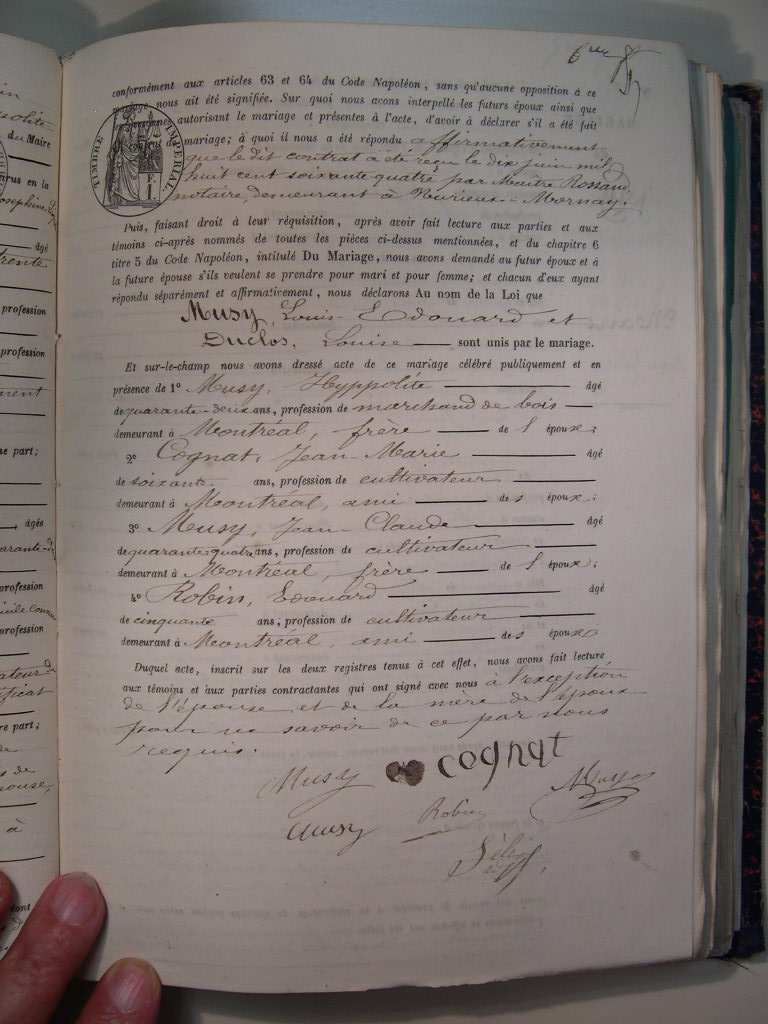 6me
conformément aux articles 63 et 64 du Code Napoléon, sans qu'aucune opposition à ce
mariage nous ait été signifiée. Sur quoi nous avons interpellé les futurs époux ainsi que
personnes autorisant le mariage et présentes à l'acte, d'avoir à déclarer s'il a été fait
contrat de mariage; à quoi il nous a été répondu affirmativement
que le dit contrat a été reçu le dix juin mil
huit cent soixante quatre par Maître Rossand
notaire, demeurant à Nurieux-Mornay.
TIMBRE IMPÉRIAL
F. 1
Puis, faisant droit à leur réquisition, après avoir fait lecture aux parties et aux
témoins ci-après nommés de toutes les pièces ci-dessus mentionnées, et du chapitre 6
titre 5 du Code Napoléon, intitulé Du Mariage, nous avons demandé au futur époux et à
la future épouse s'ils veulent se prendre pour mari et pour femme; et chacun d'eux ayant
répondu séparément et affirmativement, nous déclarons Au nom de la Loi que
Musy, Louis-Edouard et
Duclos, Louise sont unis par le mariage.
Et sur-le-champ nous avons dressé acte de ce mariage célébré publiquement et en
présence de 1º Musy, Hyppolite âgé
de quarante-deux ans, profession de marchand de bois
demeurant à Montréal, frère de l époux;
2º Cognat, Jean-Marie âgé
de soixante ans, profession de cultivateur
demeurant à Montréal, ami des époux;
3º Musy, Jean-Claude âgé
de quarante quatre ans, profession de cultivateur
demeurant à Montréal, frère de l époux;
4º Robin, Edouard âgé
de cinquante ans, profession de cultivateur
demeurant à Montréal, ami des époux
Duquel acte, inscrit sur les deux registres tenus à cet effet, nous avons fait lecture
aux témoins et aux parties contractantes qui ont signé avec nous à l'exception
de l'épouse et de la mère de l'époux
pour ne savoir de ce par nous
requis.
Musy cognat
Musy Robin
du Maire
âgé
trente
profession
part;
âgés
profession
profession
part;